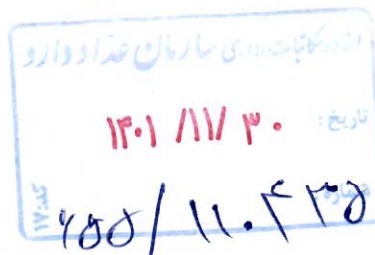 مکاتبات اداری سازمان غذا و دارو
تاریخ: ۱۴۰۱/۱۱/۳۰
شماره: ۶۵۵/۱۱۰۴۳۵
کد: ۱۷